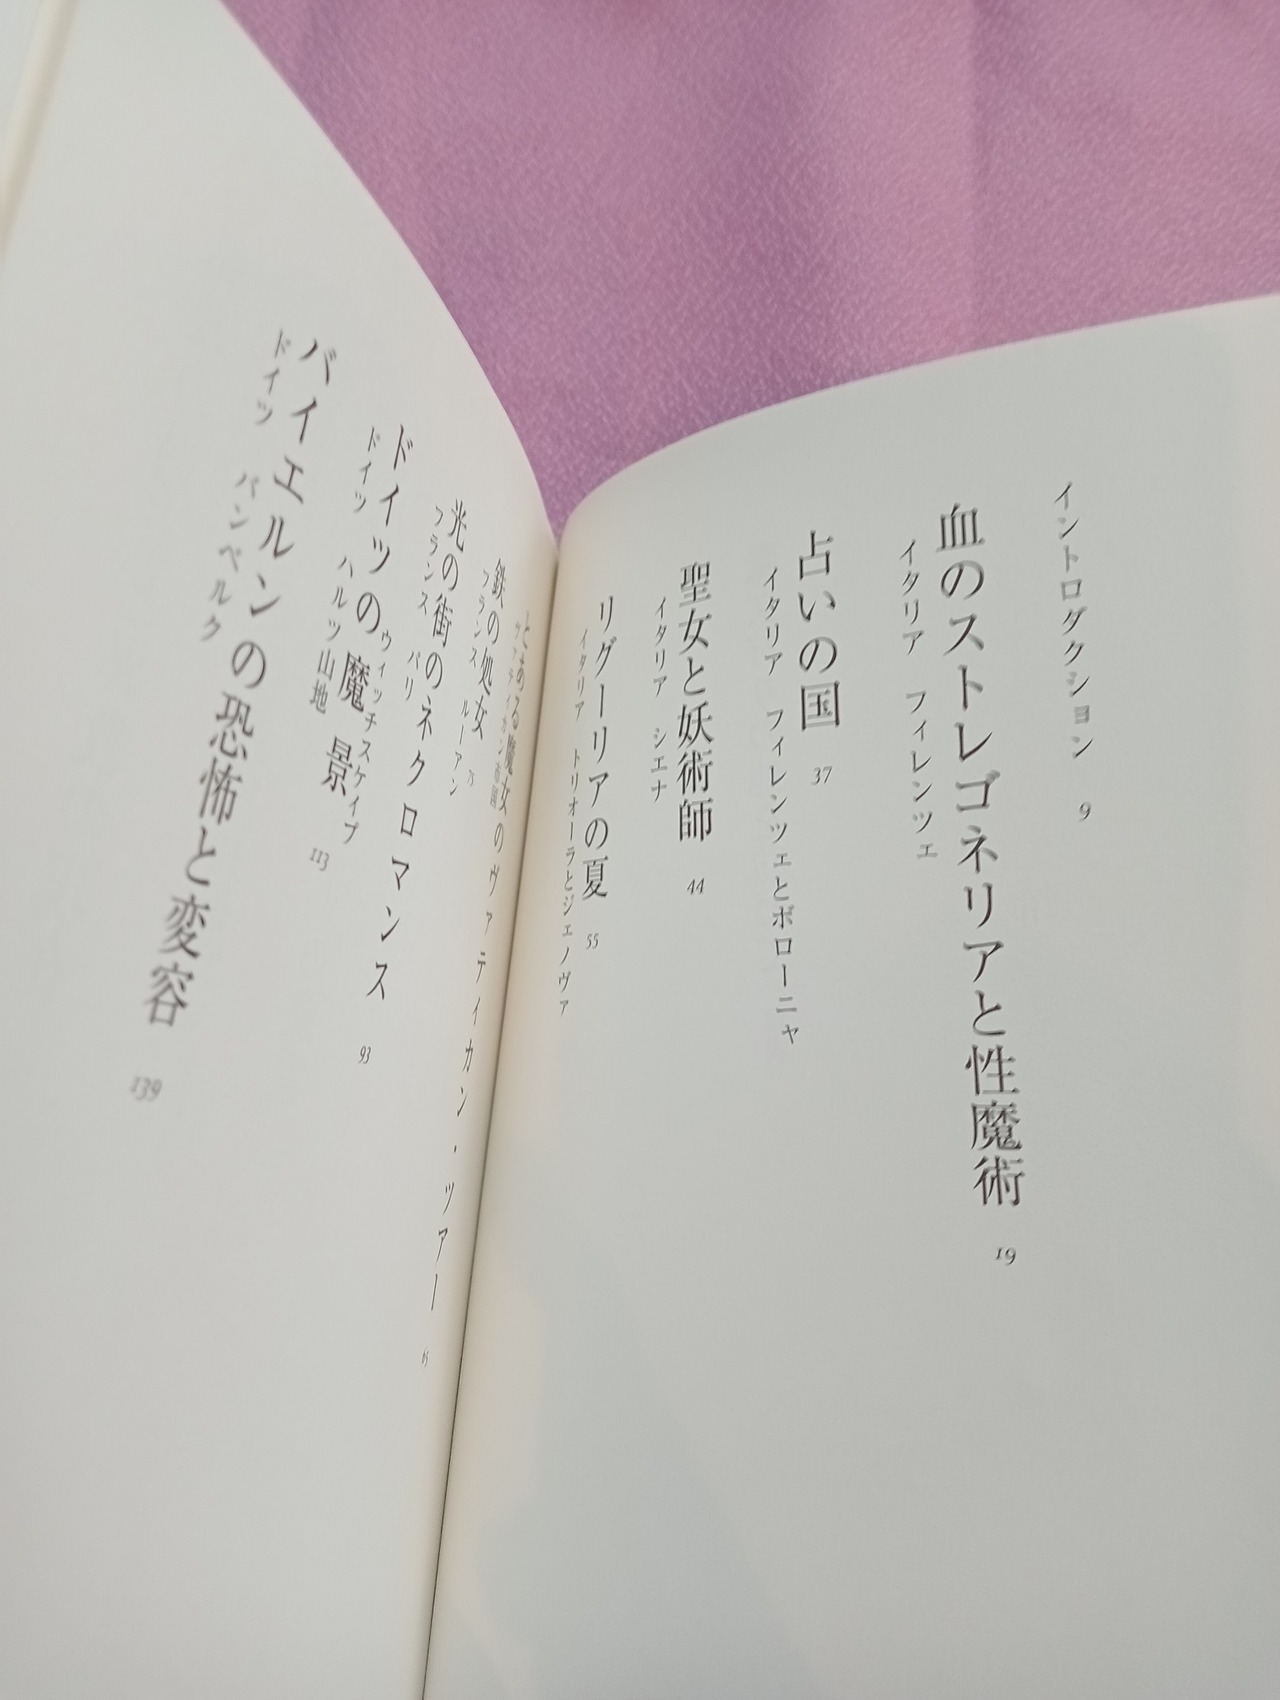 イントロダクション 9
血のストレゴネリアと性魔術 19
イタリア フィレンツェ
占いの国 37
イタリア フィレンツェとボローニャ
聖女と妖術師 44
イタリア シエナ
リグーリアの夏 55
イタリア トリオーラとジェノヴァ
とある魔女のヴァティカン・ツアー 65
ヴァティカン市国
鉄の処女 75
フランス ルーアン
光の街のネクロマンス 93
フランス パリ
ウィッチスケイプ
ドイツの魔景 113
ドイツ ハルツ山地
バイエルンの恐怖と変容 139
ドイツ バンベルク